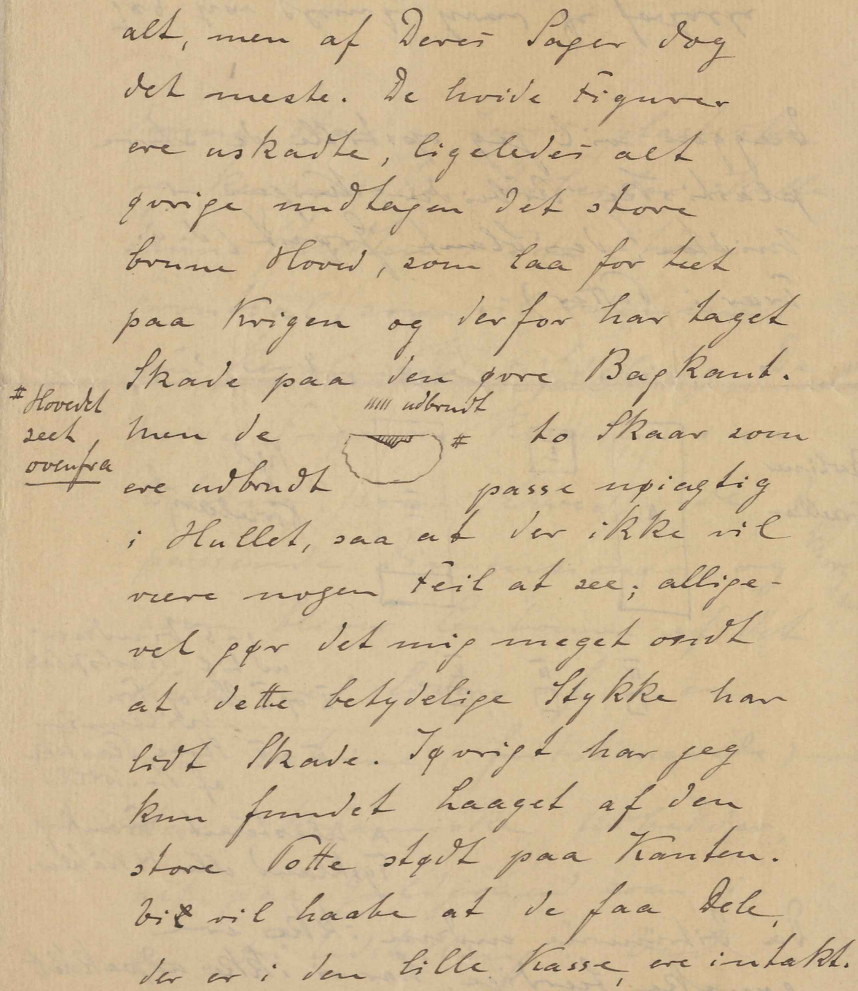 alt, men af Deres Sager dog
det meste. De hvide Figurer
ere uskadte, ligeledes alt
øvrige undtagen det store
brune Hoved, som laa for tæt
paa Krigen og derfor har taget
Skade paa den øvre Bagkant.
udbrudt
# Hovedet
seet
ovenfra
men de # to Skaar som
ere udbrudt passe nøiagtig
i Hullet, saa at der ikke vil
være nogen Feil at see; allige-
vel gør det mig meget ondt
at dette betydelige Stykke har
lidt Skade. Iøvrigt har jeg
kun fundet Laaget af den
store Potte stødt paa Kanten.
Vi vil haabe at de faa Dele,
der er i den lille Kasse, ere intakt.